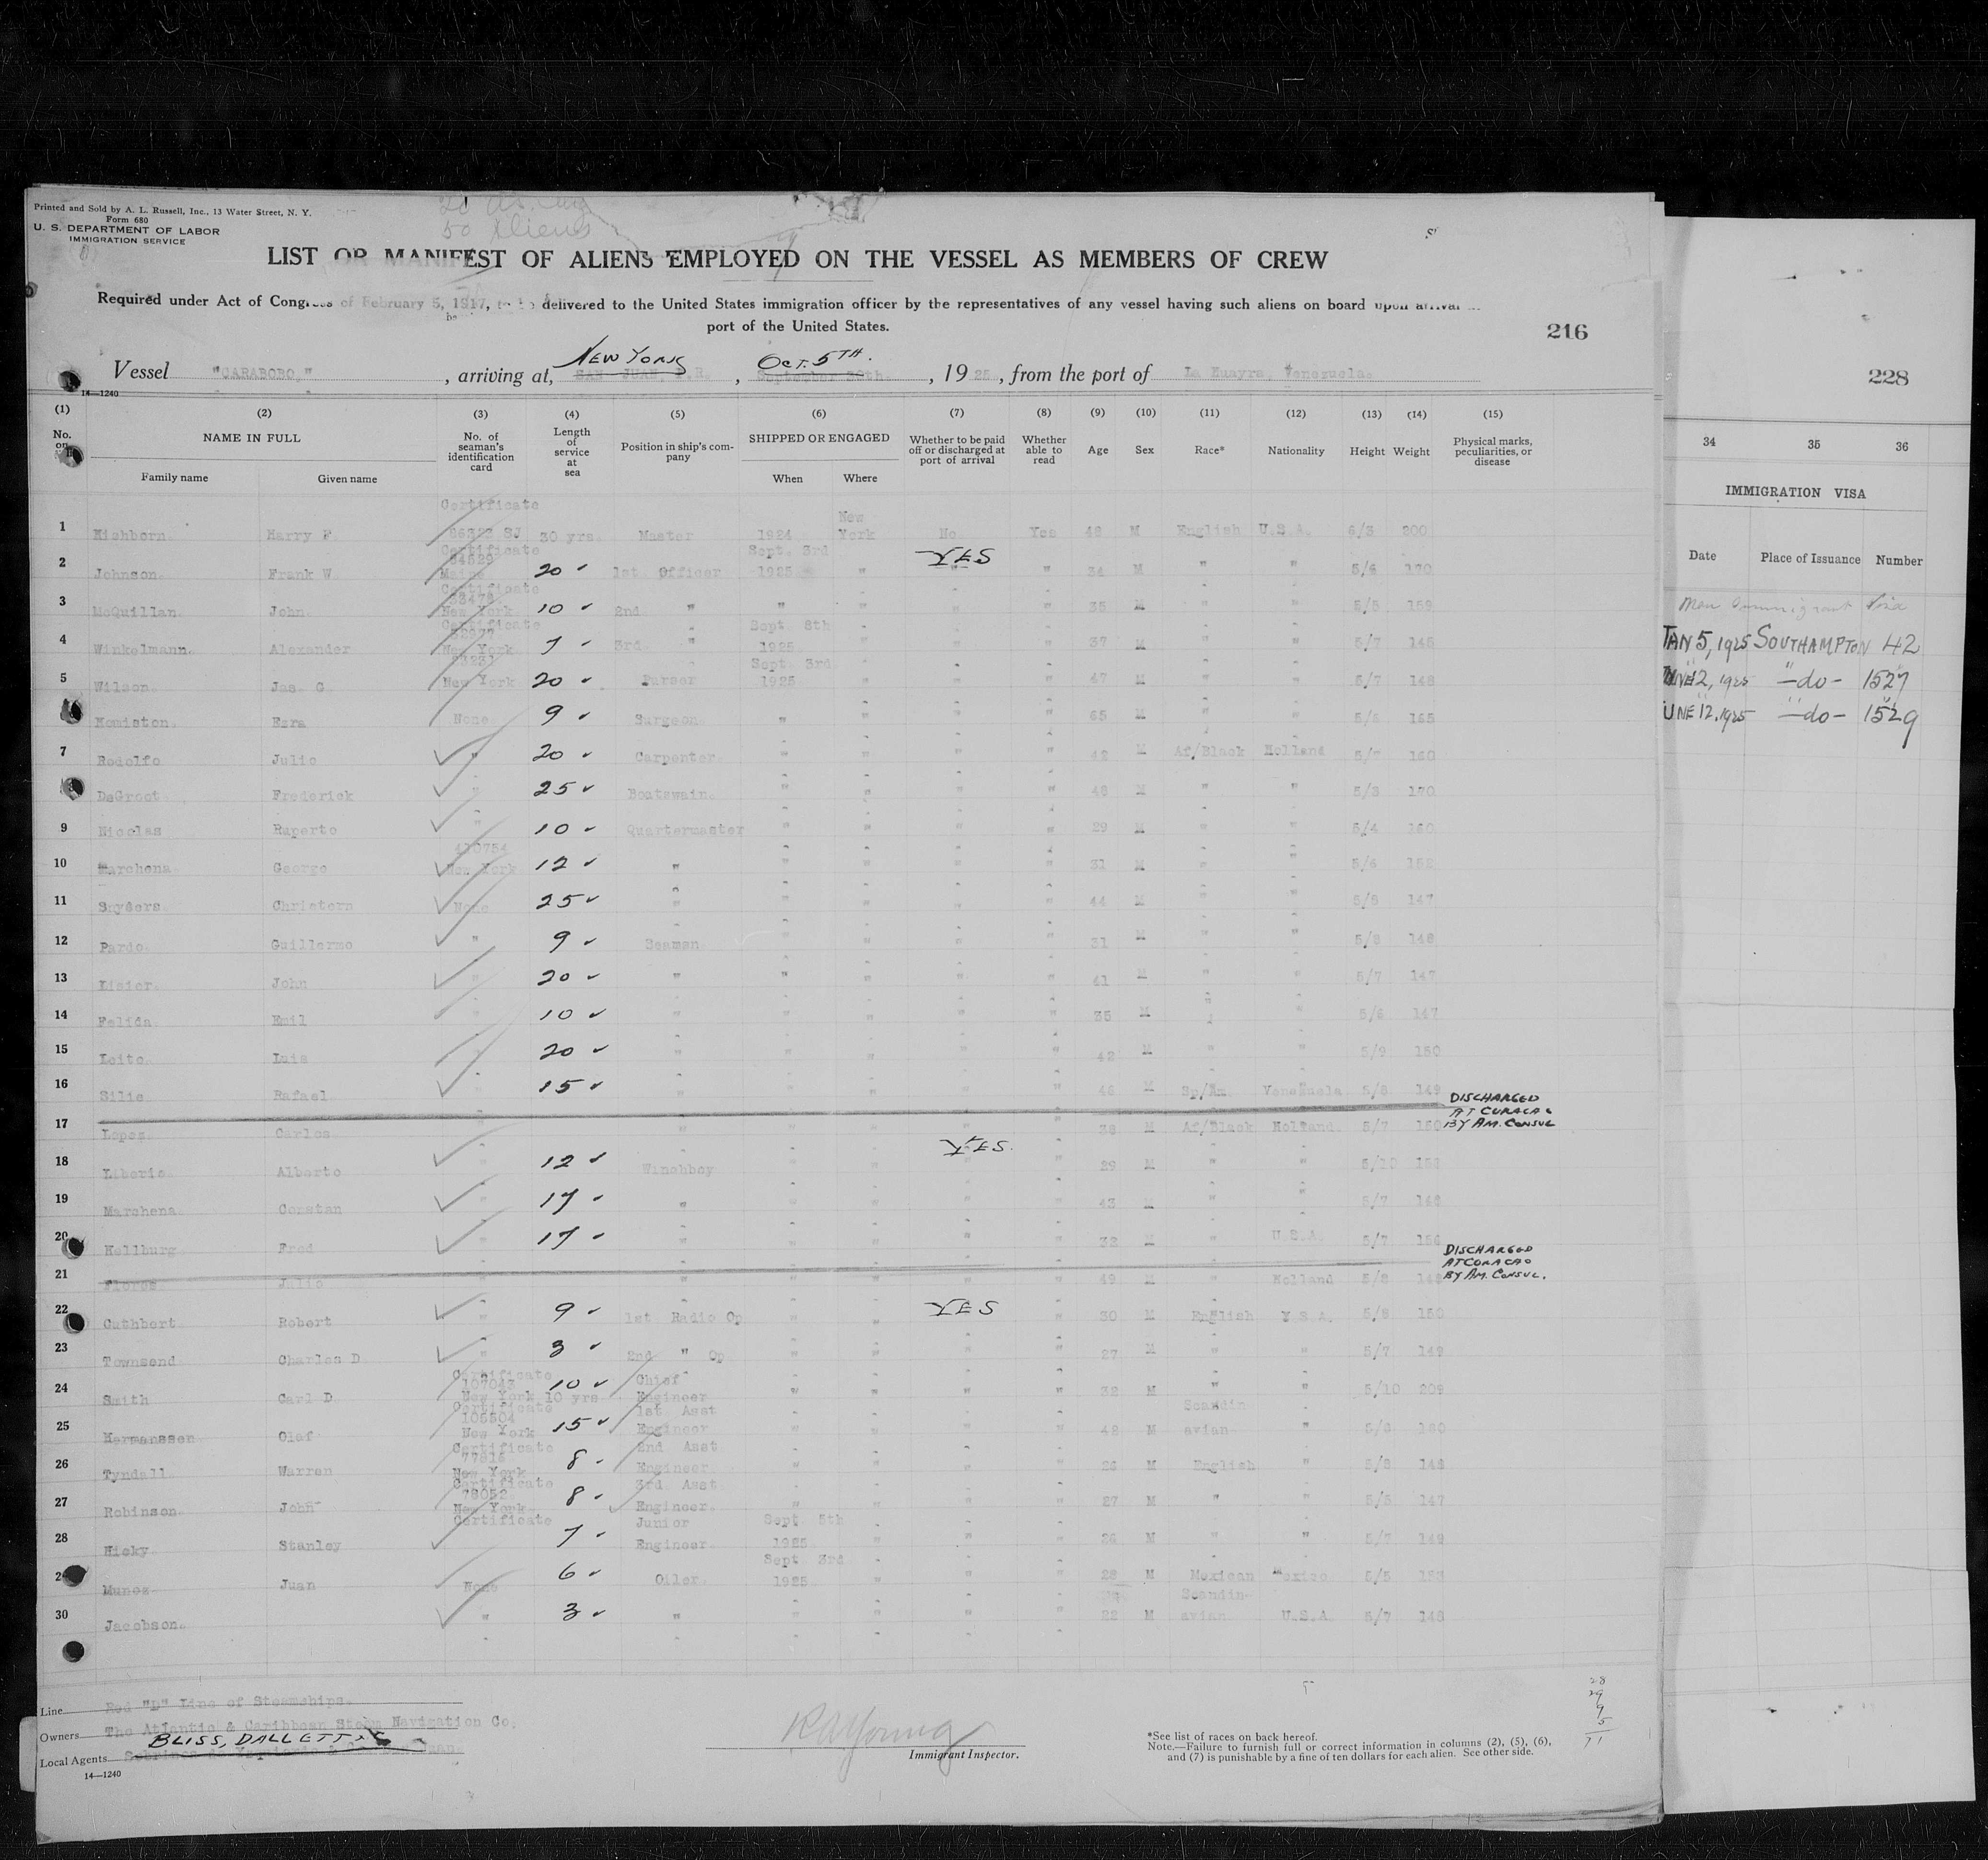 Printed and Sold by A. L. Russell, Inc., 13 Water Street, N. Y.
Form 680
U. S. DEPARTMENT OF LABOR
IMMIGRATION SERVICE
50 Aliens
LIST OR MANIFEST OF ALIENS EMPLOYED ON THE VESSEL AS MEMBERS OF CREW
Required under Act of Congress of February 5, 1917, to be delivered to the United States immigration officer by the representatives of any vessel having such aliens on board upon arrival
port of the United States.
216
Vessel "CARABOBO," , arriving at, NEW YORK SAN JUAN, P.R. , OCT. 5TH. September 30th. , 1925, from the port of La Huayra, Venezuela.
14—1240
(1) (2) (3) (4) (5) (6) (7) (8) (9) (10) (11) (12) (13) (14) (15)
No. on NAME IN FULL No. of seaman's identification card Length of service at sea Position in ship's company SHIPPED OR ENGAGED Whether to be paid off or discharged at port of arrival Whether able to read Age Sex Race* Nationality Height Weight Physical marks, peculiarities, or disease
Family name Given name When Where
1 Harry F. Certificate 30 yrs. Master 1924 New York No. Yes 48 M English U.S.A. 6/3 200
2 Johnson. Frank W. Certificate 34529 Maine 20 ✓ 1st Officer Sept. 3rd 1925 " YES " " 34 M " " 5/6 170
3 McQuillan. John. Certificate New York 10 ✓ 2nd " " " " " 35 M " " 5/5 159
4 Winkelmann. Alexander Certificate New York 7 ✓ 3rd. " Sept. 8th 1925 " " " 37 M " " 5/7 145
5 Wilson. Jas. G. New York 20 ✓ Purser Sept. 3rd 1925 " " " 47 M " " 5/7 148
Ezra None 9 ✓ Surgeon. " " " " 65 M " " 5/6 165
7 Rodolfo Julio ✓ " 20 ✓ Carpenter " " " " 42 M Af/Black Holland 5/7 160
DeGroot Frederick ✓ " 25 ✓ Boatswain. " " " " 48 M " " 5/3 170
9 Nicolas Ruperto ✓ " 10 ✓ Quartermaster " " " " 29 M " " 5/4 160
10 Marchena George ✓ 410754 New York 12 ✓ " " " " " 31 M " " 5/6 152
11 Snyders Christern ✓ None 25 ✓ " " " " " 44 M " " 5/5 147
12 Pardo. Guillermo ✓ " 9 ✓ Seaman. " " " " 31 M " " 5/8 148
13 Lisier. John ✓ " 20 ✓ " " " " " 41 M " " 5/7 147
14 Felida. Emil " 10 ✓ " " " " " 35 M " " 5/6 147
15 Leito. Luis " 20 ✓ " " " " " 42 M " " 5/9 150
16 Silie Rafael ✓ " 15 ✓ " " " " " 46 M Sp/Am. Venezuela 5/8 149
17 Lopez Carlos " " " " " " 38 M Af/Black Holland. 5/7 150 DISCHARGED AT CURACAO BY AM. CONSUL
18 Liberia Alberto ✓ " 12 ✓ Winchboy " " YES. " 29 M " " 5/10
19 Marchena Constan ✓ " 17 ✓ " " " " " 43 M " " 5/7 148
20 Hellburg Fred ✓ " 17 ✓ " " " " " 32 M " U.S.A. 5/7 156
21 Flores Julio " " " " " " 49 M " Holland 5/8 DISCHARGED AT CURACAO BY AM. CONSUL.
22 Cuthbert Robert ✓ " 9 ✓ 1st Radio Op " " YES " 30 M English U.S.A. 5/8 150
23 Townsend Charles D. ✓ " 3 ✓ 2nd " Op " " " " 27 M " " 5/7 149
24 Smith Carl D. Certificate 107043 New York 10 yrs 10 ✓ Chief Engineer " " " " 32 M " " 5/10 209
25 Hermanssen Olaf Certificate 105504 New York 15 ✓ 1st. Asst Engineer " " " " 48 M Scandinavian " 5/6 180
26 Tyndall Warren Certificate 77816 New York 8 ✓ 2nd Asst Engineer. " " " " 26 M English " 5/8 149
27 Robinson John Certificate 78052 New York. 8 ✓ 3rd. Asst. Engineer. " " " " 27 M " " 5/5 147
28 Hicky Stanley Certificate 7 ✓ Junior Engineer Sept. 5th 1925 " " " 26 M " " 5/7 149
Munoz Juan None 6 ✓ Oiler. Sept. 3rd 1925 " " " 28 M Mexican Mexico. 5/5 153
30 Jacobson. ✓ " 3 ✓ " " " " " 22 M Scandinavian U.S.A. 5/7 148
Line Red "D" Line of Steamships.
Owners The Atlantic & Caribbean Steam Navigation Co.
Local Agents BLISS, DALLETT & Co
14—1240
R A Young
Immigrant Inspector.
*See list of races on back hereof.
Note.—Failure to furnish full or correct information in columns (2), (5), (6), and (7) is punishable by a fine of ten dollars for each alien. See other side.
28
29
9
5
71
228
34 35 36
IMMIGRATION VISA
Date Place of Issuance Number
Non Immigrant Visa
JAN 5, 1925 SOUTHAMPTON 42
JUNE 12, 1925 —do— 1527
JUNE 12, 1925 —do— 1529